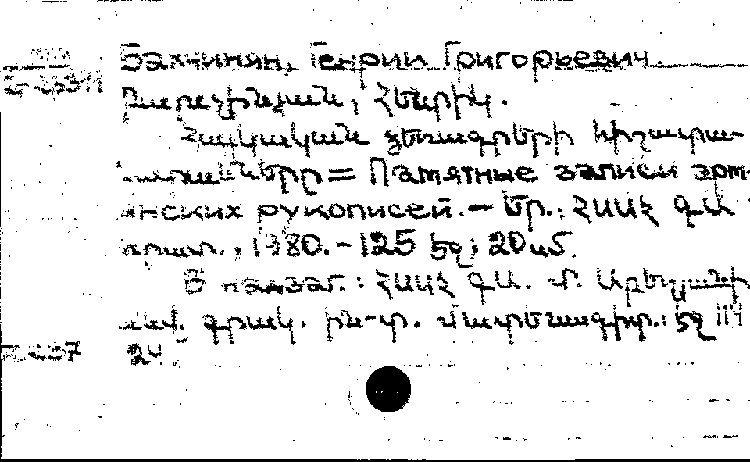 Бахчинян, Генрии Григорьевич
Բախչինյան, Հենրիկ.
Հայկական ձեռագրերի հիշատա-
կարանները = Памятные записи арм-
янских рукописей. — Եր.: ՀՍՍՀ ԳԱ
հրատ., 1980. - 125 էջ; 20 սմ.
В надзаг.: ՀՍՍՀ ԳԱ. Մ. Աբեղյանի
անվ. գրակ. ին-տ. Մատենագիտ.: էջ 114
24